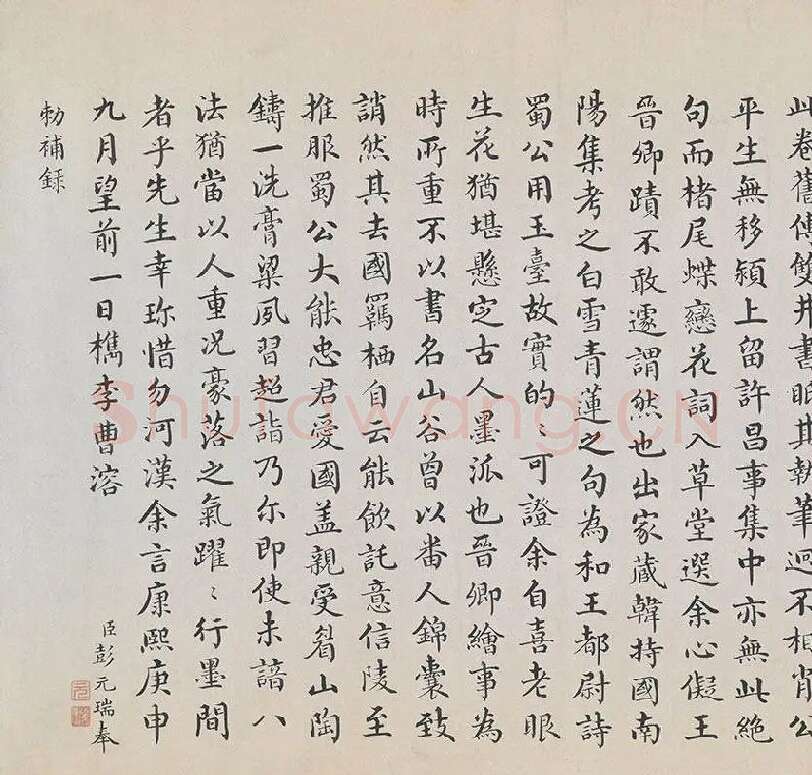 此卷舊傳雙井書眂其執筆迥不相肖公
平生無移潁上留許昌事集中亦無此絶
句而楮尾蝶戀花詞入草堂選余心儗王
晉卿蹟不敢遽謂然也出家藏韓持國南
陽集考之白雪青蓮之句為和王都尉詩
蜀公用玉臺故實的〻可證余自喜老眼
生花猶堪懸定古人墨派也晉卿繪事為
時所重不以書名山谷曾以番人錦囊致
誚然其去國羈栖自云能飲託意信陵至
推服蜀公大能忠君愛國蓋親受眉山陶
鑄一洗膏粱夙習超詣乃尔即使未諳八
法猶當以人重况豪落之氣躍〻行墨間
者乎先生幸珎惜勿河漢余言康熙庚申
九月望前一日檇李曹溶
臣彭元瑞奉
勅補録
Shufawang.CN